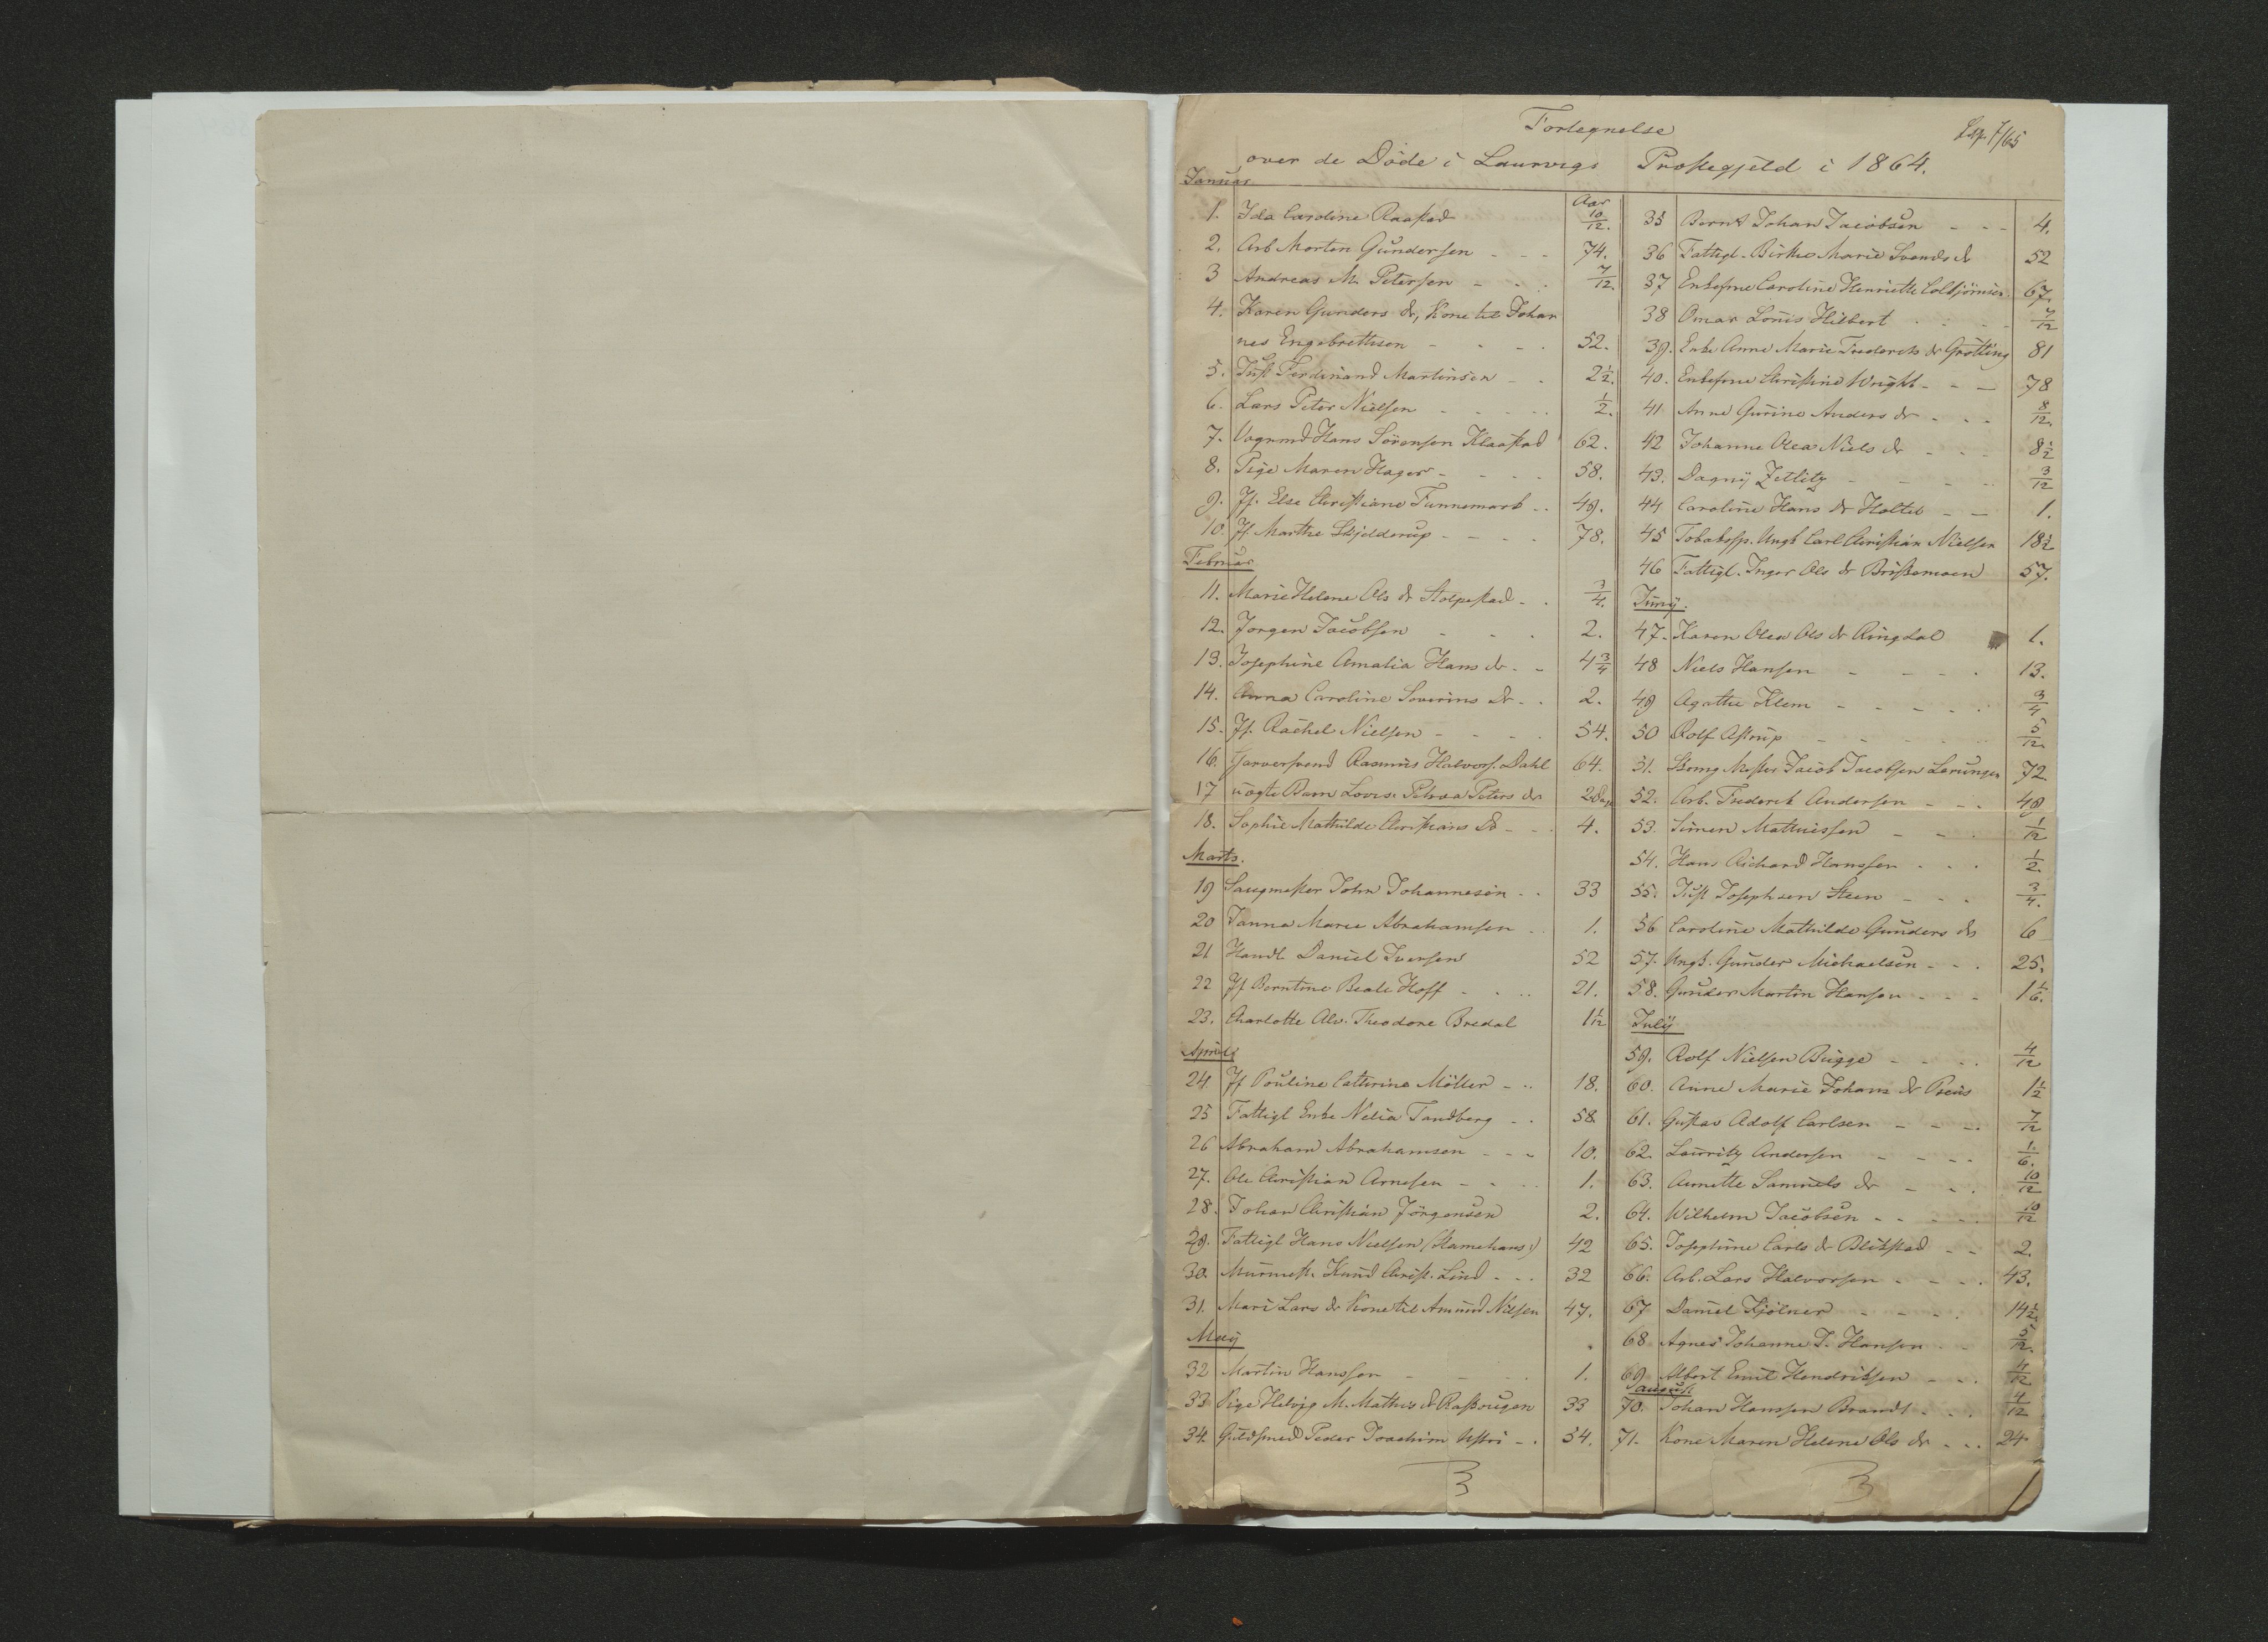 Fortegnelse
over de Döde i Laurvigs Prostegjeld i 1864.
7/65
Januar
Aar
1. Ida Caroline Raastad 10/12.
2. Arb Morten Gundersen - - - 74.
3 Andreas M. Petersen - - - 7/12.
4. Karen Gunders dr, Kone til Johan
nes Engebrettsen - - - - 52.
5. Just Ferdinand Martinsen - - 2 1/2.
6. Lars Peter Nielsen - - - - 1/2.
7. Vognmd Hans Sörensen Klaastad 62.
8. Pige Maren Hager - - - - 58.
9. Jf. Else Christiane Funnemark - - 49.
10. Jf. Marthe Skjelderup - - - - 78.
Februar
11. Marie Helene Ols dr Stolpestad - - 3/4.
12. Jorgen Jacobsen - - - 2.
13. Josephine Amalia Hans dr - - 4 3/4
14. Anna Caroline Severins Dr - - 2.
15. Jf. Rachel Nielsen - - - - 54.
16. Garversvend Rasmus Halvors. Dahl 64.
17 uægte Barn Lovise Petrea Peters dr 2 Dage
18. Sophie Mathilde Christians Dr - - 4.
Marts.
19 Saugmester John Johannesen - - 33
20 Janna Marie Abrahamsen - - 1.
21 Handl. Daniel Iversen 52
22 Jf Berntine Beate Hoff - - - 21.
23. Charlotte Alv. Theodore Bredal 1 1/12
April
24 Jf Pouline Cathrine Möller - - 18.
25 Fattigl Enke Nelia Tandberg - - 58
26 Abraham Abrahamsen - - - 10.
27. Ole Christian Arnesen - - - 1.
28. Johan Christian Jörgensen 2.
29. Fattigl Hans Nielsen 42
30. Murmest. Knud Christ. Lind - - - 32
31. Mari Lars dr Kone til Amund Nilsen 47.
May
32 Martin Hanssen - - - 1.
33 Pige Helvig M. Mathis dr 33
34. Guldsmed Peder Joachim - - 54.
35 Bernt Johan Jacobsen - - - 4.
36 Fattigl. Birthe Marie Svends dr 52
37 Enkefrue Caroline Henriette Colbjörnsen 67.
38 Omar Louis Hilbert - - - 7/12
39. Enke Anne Marie Frederiks dr Grötting 81
40. Enkefrue Christine Wright - - - 78
41 Anne Gurine Anders dr - - - 8/12.
42 Johanne Olea Niels dr - - - 8 1/2
43. Dagny Zetlitz - - - - 3/12
44 Caroline Hans dr Holtet - - 1.
45 Tobaksfp. Ungk Carl Christian Nielsen 18 1/2
46 Fattigl. Inger Ols dr 57.
Juny.
47. Karen Olea Ols dr Ringdal 1.
48 Niels Hansen - - - - 13.
49 Agathe Klem - - - - - 3/4
50 Rolf Astrup - - - - 5/12.
51. Skomg Mester Jacob Jacobsen 72
52. Arb. Frederik Andersen - - - 49
53. Simen Mathissen - - - 1/12
54. Hans Richard Hanssen - - - 1/2.
55. Just Josephsen Steen - - - 3/4.
56 Caroline Mathilde Gunders dr 6
57. Ungk. Gunder Michaelsen - - - 25.
58. Gunder Martin Hansen - - - 1 1/6.
July
59. Rolf Nielsen Bugge - - - - 4/12
60. Anne Marie Johans dr Preus 1 1/2
61. Gustav Adolf Carlsen - - - 7/12
62. Lauritz Andersen - - - - 1/6.
63. Annette Samuels dr - - - 10/12
64. Wilhelm Jacobsen - - - - 10/12
65. Josephine Carls dr - - 2.
66. Arb. Lars Halvorsen - - - - 43.
67 Daniel Kjölner - - - - 14 1/2.
68 Agnes Johanne D. Hansen - - 5/12.
69 Albert Emil Hendriksen - - - 4/12
August
70. Johan Hanssen Brandt - - - 4/12
71. Kone Maren Helene Ols dr - - - 24